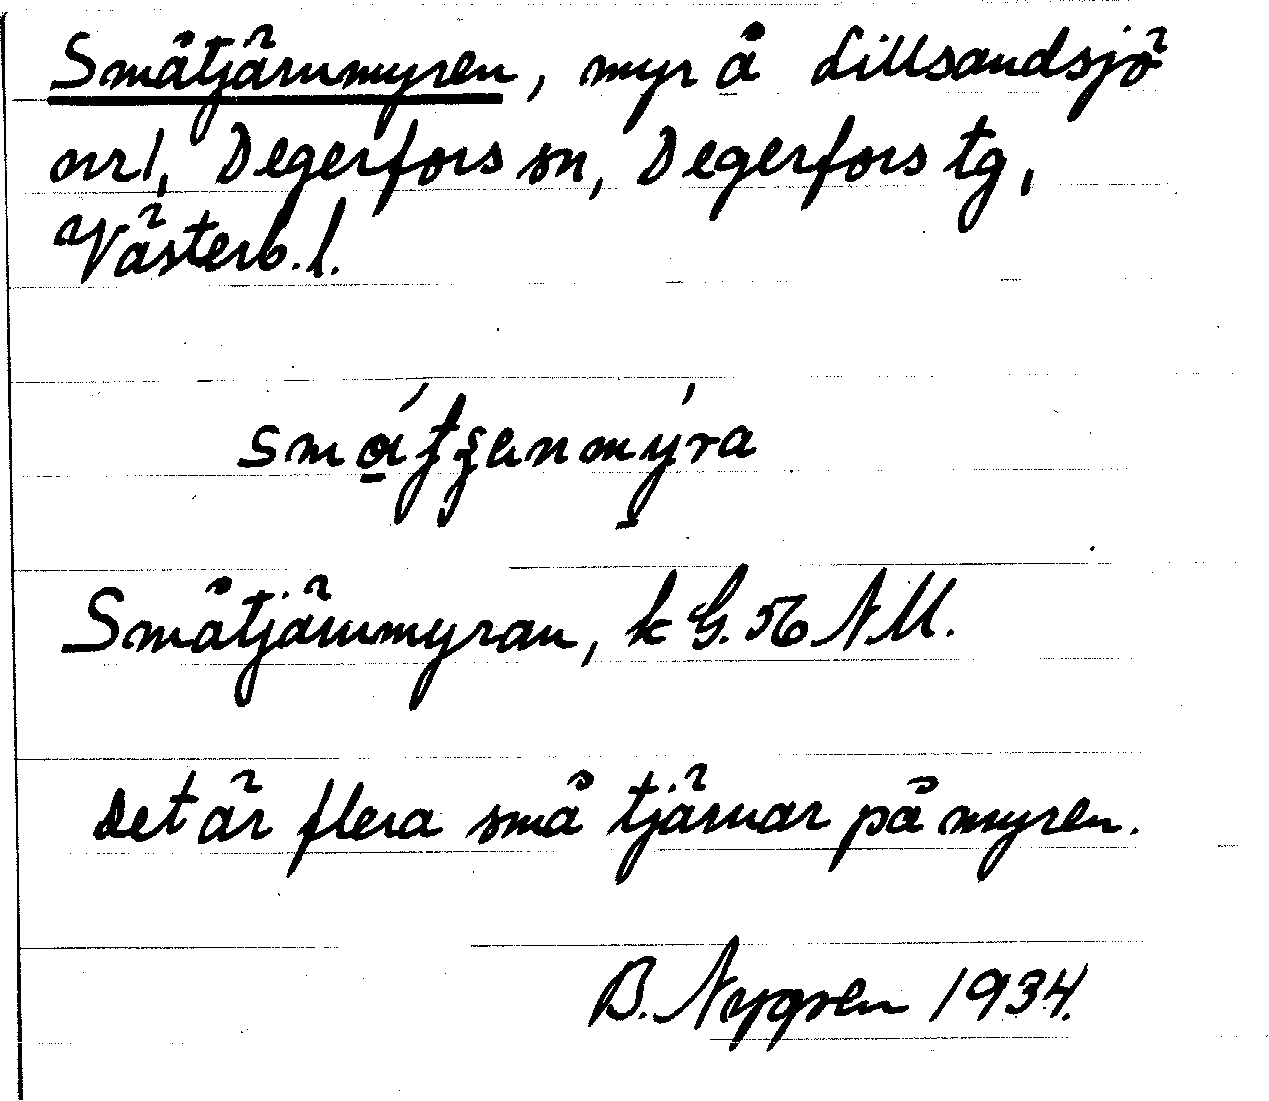 Småtjärnmyren, myr å Lillsandsjö
nr 1, Degerfors sn, Degerfors tg,
Västerb. l.
Småtjärnmyran, k G. 56 NM.
Det är flera små tjärnar på myren.
B. Nygren 1934.